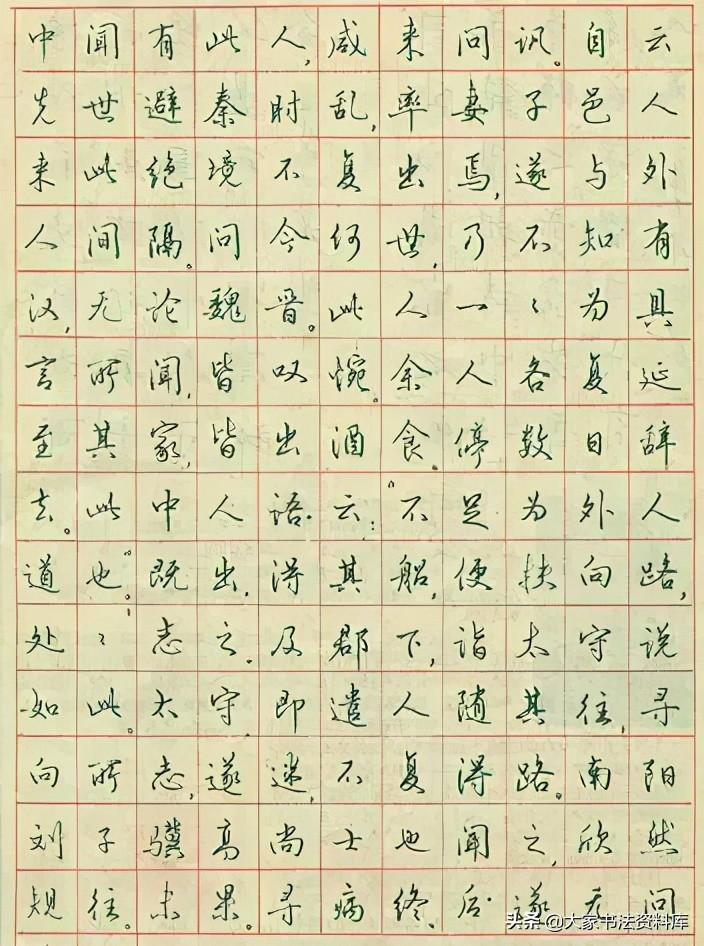 中闻有此人,咸来问讯。自云
先世避秦时乱,率妻子邑人
来此绝境不复出焉,遂与外
人间隔。问今何世,乃不知有
汉,无论魏晋。此人一〻为具
言所闻,皆叹惋。余人各复延
至其家,皆出酒食。停数日辞
去。此中人语云:“不足为外人
道也。”既出,得其船,便扶向路,
处〻志之。及郡下,诣太守说
如此。太守即遣人随其往,寻
向所志,遂迷,不复得路。南阳
刘子骥高尚士也闻之,欣然
规往。未果。寻病终。后遂无问
头条 @大家书法资料库